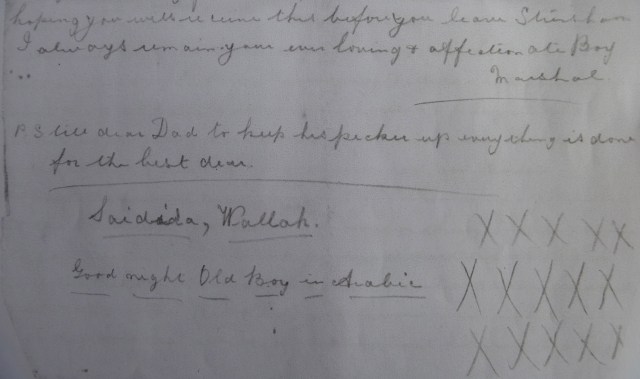 hoping you will receive this before you leave
I always remain your ever loving & affectionate Boy
Marshal.
P.S tell dear Dad to keep his pecker up everything is done
for the best dear.
Saidida, Wallah.
X X X X X
Good night Old Boy in Arabic
X X X X X
X X X X X